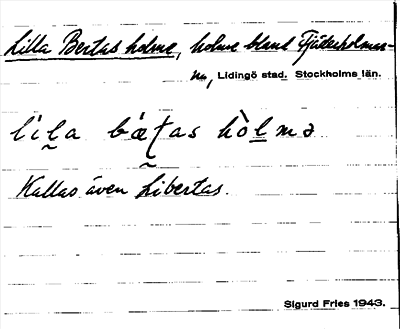 Lilla Bertas holme, holme bland Fjäderholmar-
na, Lidingö stad. Stockholms län.
lìl̯a bæ̀ʈas hòlmə
Kallas även Libertas.
Sigurd Fries 1943.